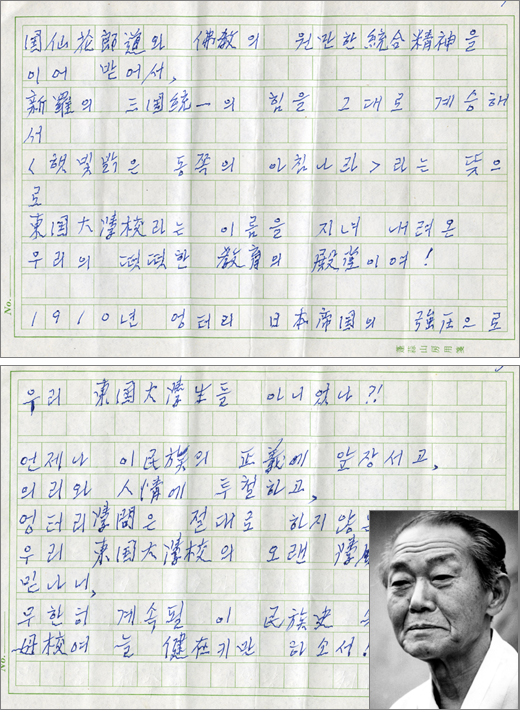 国仙花郎道와 佛教의 원만한 統合精神을
이어 받어서,
新羅의 三国統一의 힘을 그대로 계승해
서
<햇빛밝은 동쪽의 아침나라>라는 뜻으
로
東国大学校라는 이름을 지녀 내려온
우리의 떳떳한 教育의 殿堂이여!
No.
1910년 엉터리 日本帝国의 強圧으로
우리 東国大学生들 아니었나?!
언제나 이民族의 正義에 앞장서고,
의리와 人情에 투철하고,
엉터리学問은 절대로 하지않
우리 東国大学校의 오랜 学
믿나니,
무한히 계속될 이 民族史
母校여 늘 健在키만 하소서!
No.